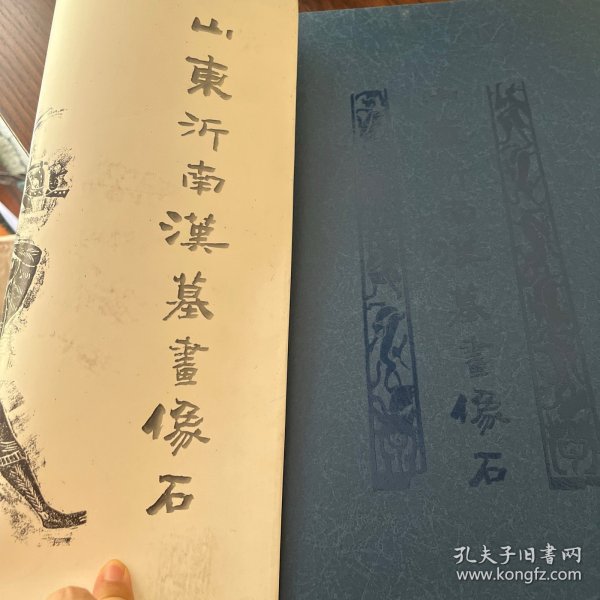 山東沂南漢墓畫像石
畫像石
孔夫子旧書网
www.kongfz.com